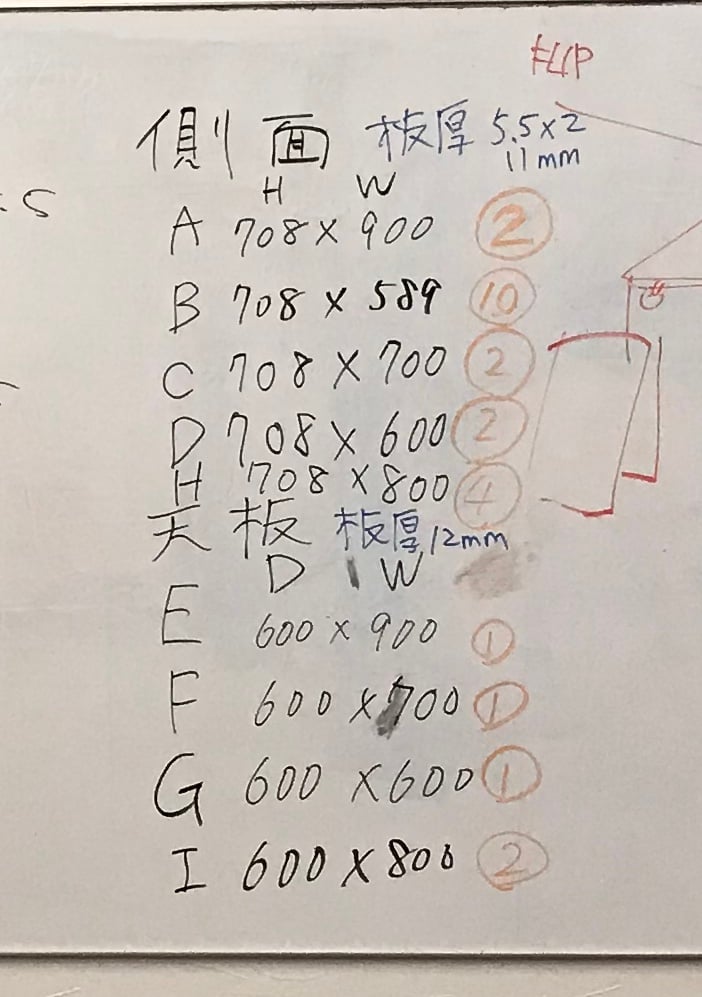 FLIP
側面 板厚 5.5×2
11mm
H W
A 708×900 ②
B 708×589 ⑩
C 708×700 ②
D 708×600 ②
H 708×800 ④
天板 板厚12mm
D W
E 600×900 ①
F 600×700 ①
G 600×600 ①
I 600×800 ②